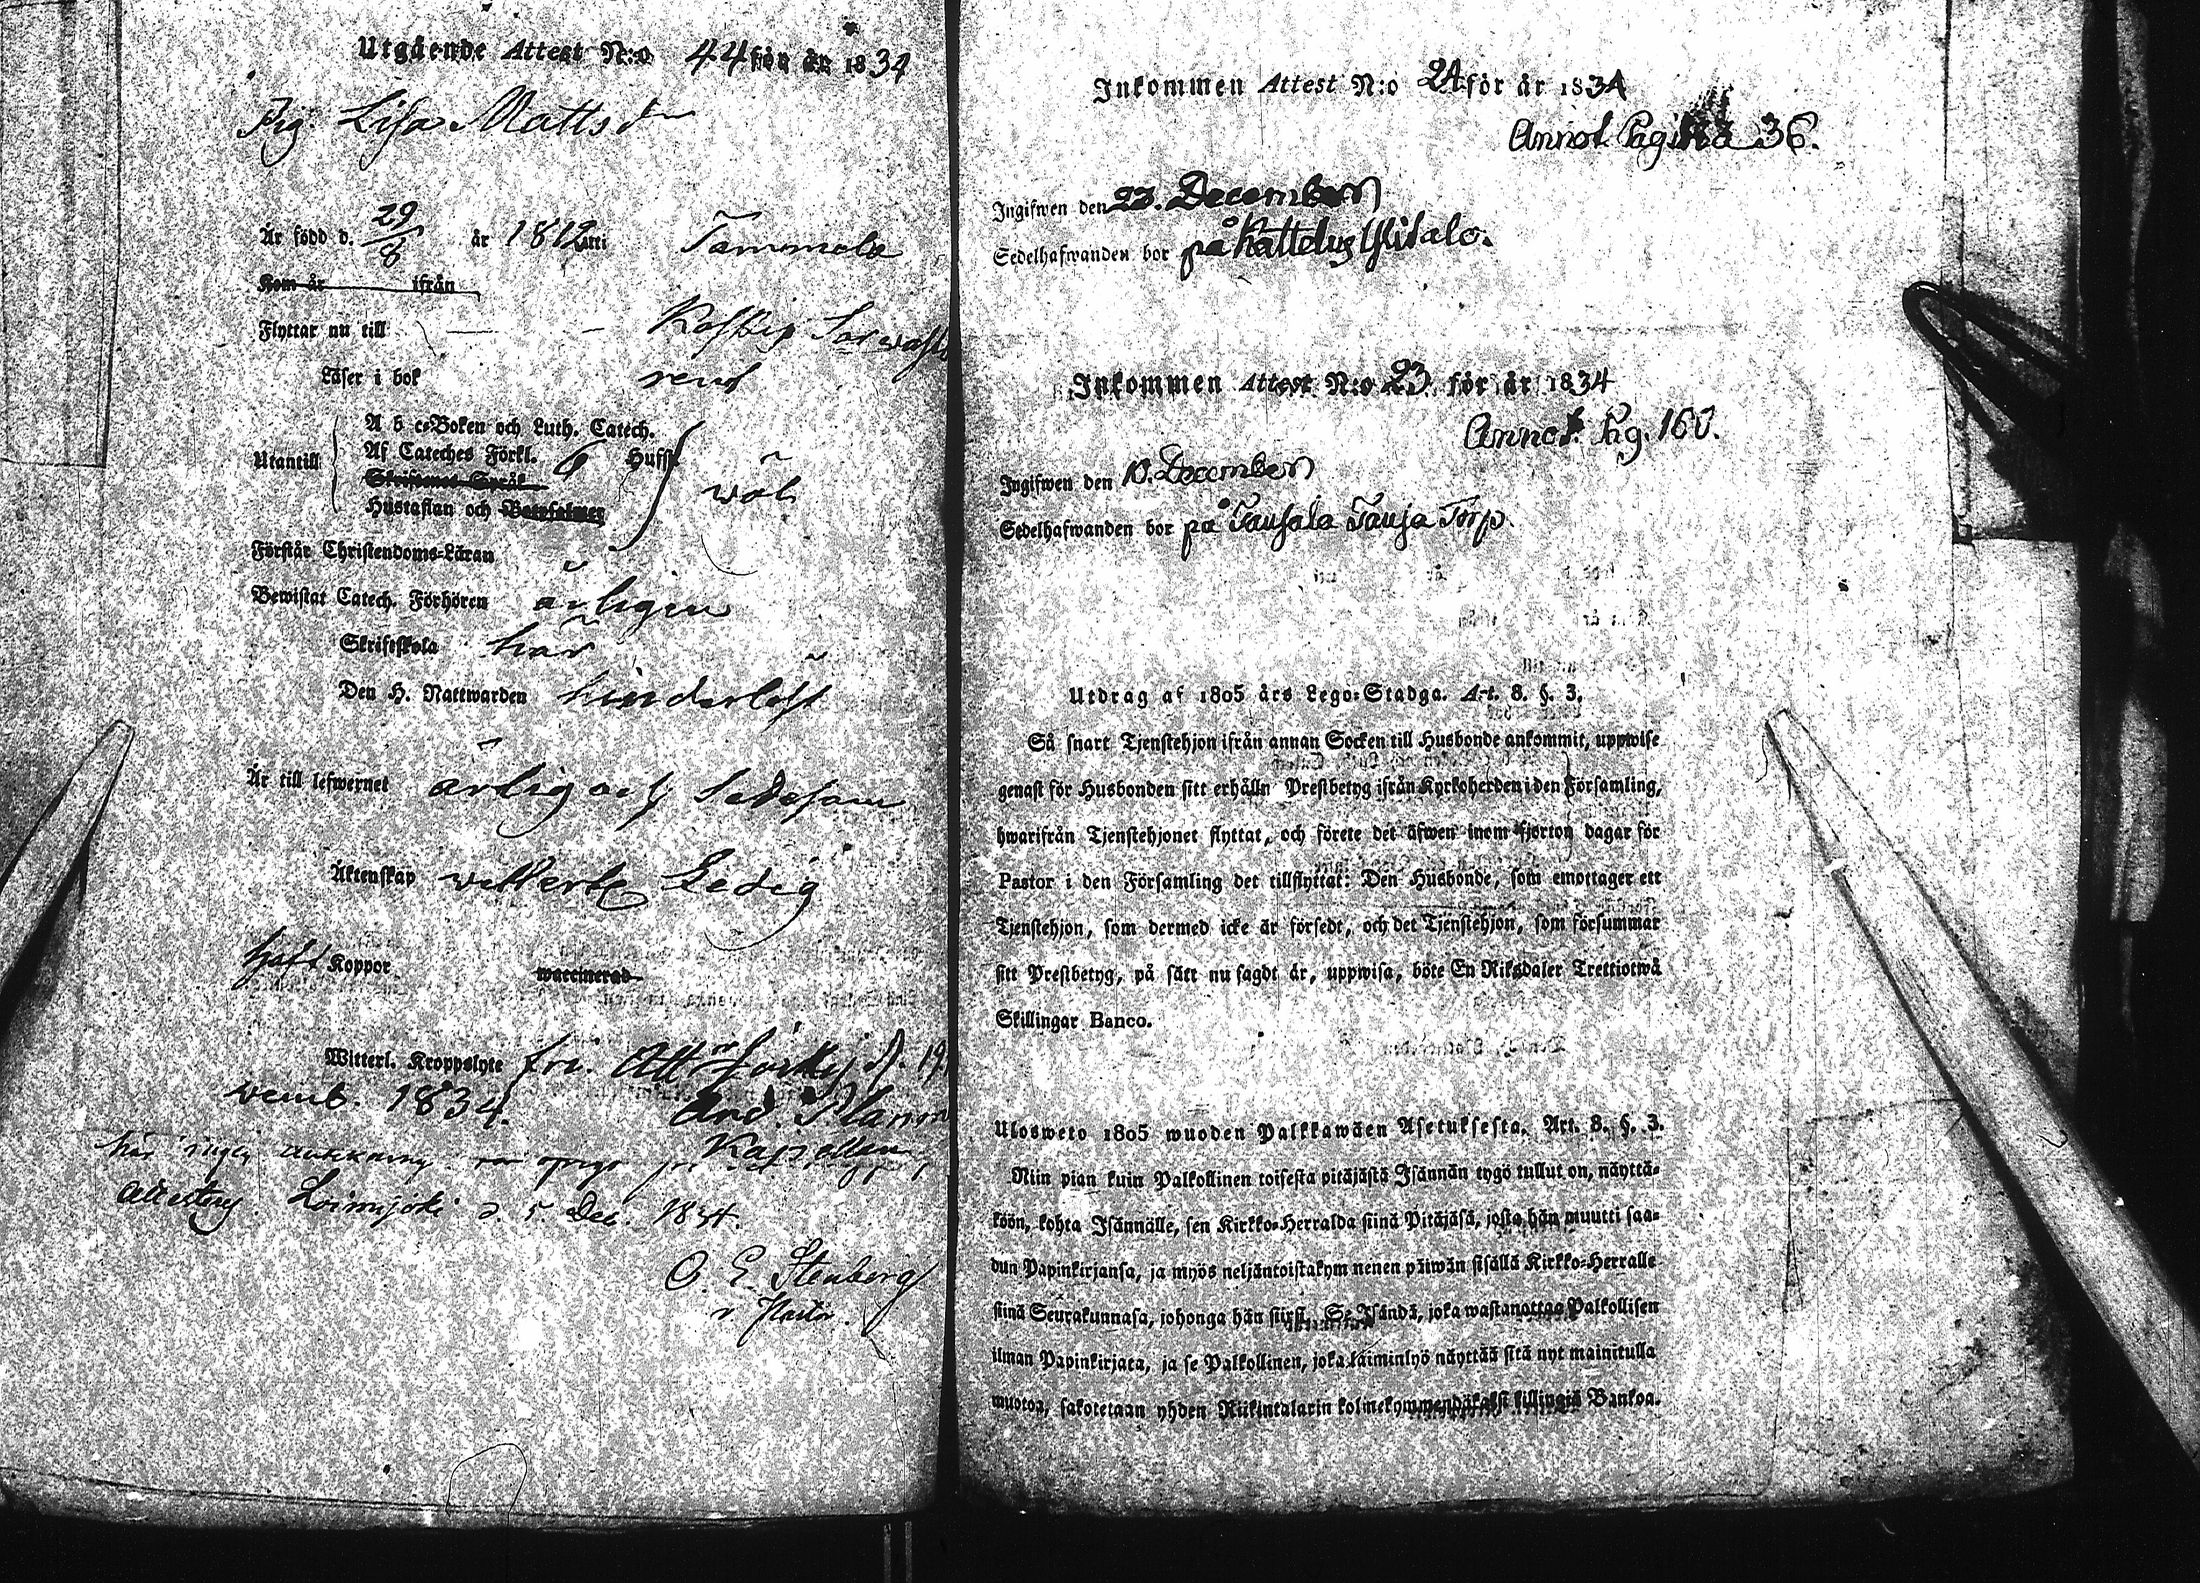 Utgående Attest N:o 44 för år 1834
Pig. Lisa Mattsdr
Är född d. 29/8 år 1812 uti Tammela
Kom år ifrån
Flyttar nu till Koskis
Läser i bok rent
A b c-Boken och Luth. Catech.
Utantill Af Cateches Förkl. 6 Hufst.
Skriftenes Språk
Hustaflan och Botpsalmer
wäl
Förstår Christendoms-Läran
Bewistat Catech. Förhören årligen
Skriftskola här
Den H. Nattwarden hinderlöst
Är till lefwernet ärlig och sedesam
Äktenskap ledig
haft Koppor waccinerad
Witterl. Kroppslyte fri.
vemb. 1834. And.
Kapellan
här
Loimijoki d. 5. Dec. 1834.
C. E. Stenberg
v. Pastor.
Inkommen Attest N:o 24 för år 1834
Annot. Pagina 36.
Ingifwen den 23. December
Sedelhafwanden bor på Kattelus Ylitalo.
Inkommen Attest N:o 23 för år 1834
Annot. Pag. 160.
Ingifwen den 10. December
Sedelhafwanden bor på Torp.
Utdrag af 1805 års Lego-Stadga. Art. 8. §. 3.
Så snart Tjenstehjon ifrån annan Socken till Husbonde ankommit, uppwise
genast för Husbonden sitt erhålln Prestbetyg ifrån Kyrkoherden i den Församling,
hwarifrån Tjenstehjonet flyttat, och förete det äfwen inom fjorton dagar för
Pastor i den Församling det tillflyttat: Den Husbonde, som emottager ett
Tjenstehjon, som dermed icke är försedt, och det Tjenstehjon, som försummar
sitt Prestbetyg, på sätt nu sagdt är, uppwisa, böte En Riksdaler Trettiotwå
Skillingar Banco.
Ulosweto 1805 wuoden Palkkawäen Asetuksesta. Art. 8. §. 3.
Niin pian kuin Palkollinen toisesta pitäjästä Isännän tygö tullut on, näyttä-
köön, kohta Isännälle, sen Kirkko-Herralda siinä Pitäjäsä, josta hän muutti saa-
dun Papinkirjansa, ja myös neljäntoistakymmenen päiwän sisällä Kirkko-Herralle
siinä Seurakunnasa, johonga hän siirsi. Se Isändä, joka wastanottaa Palkollisen
ilman Papinkirjata, ja se Palkollinen, joka laiminlyö näyttää sitä nyt mainitulla
muotoa, sakotetaan yhden Riikintalarin kolmekymmendäkaksi killingiä Bankoa.